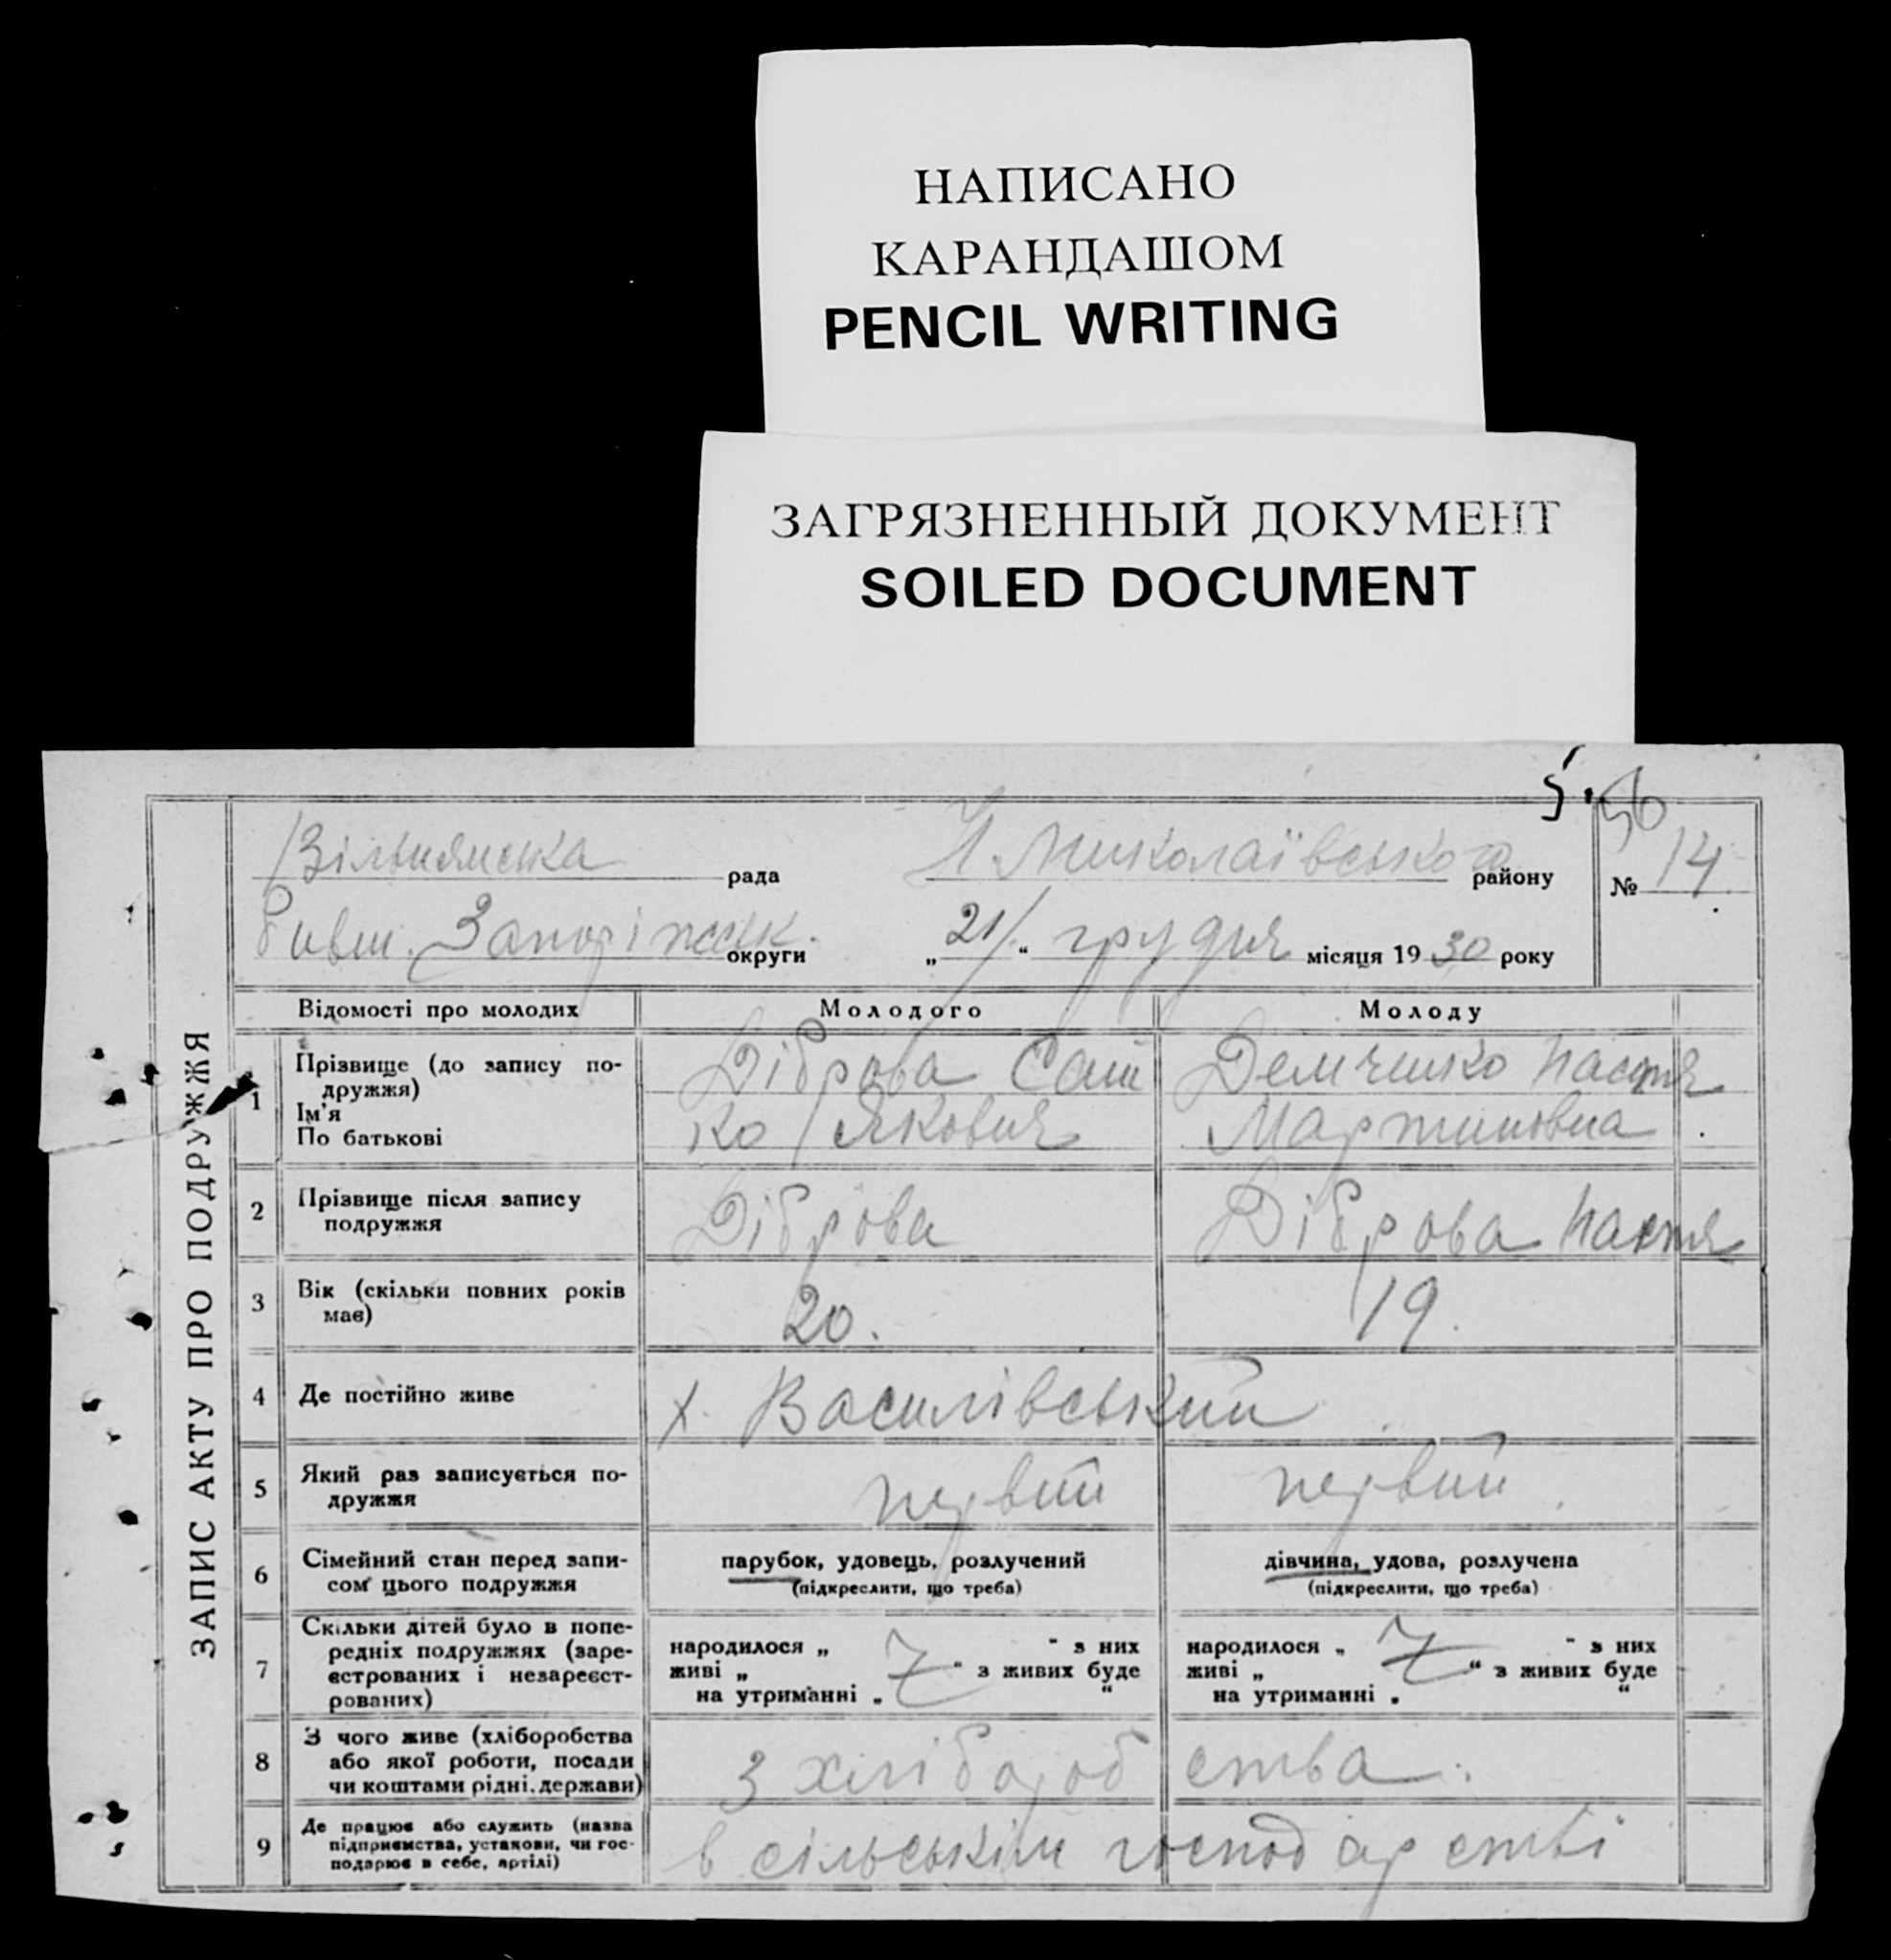 НАПИСАНО
КАРАНДАШОМ
PENCIL WRITING
ЗАГРЯЗНЕННЫЙ ДОКУМЕНТ
SOILED DOCUMENT
5. 56
рада Н Миколаївського району № 14.
бивш. Запоріжськ. округи „21/“ грудня місяця 1930 року
ЗАПИС АКТУ ПРО ПОДРУЖЖЯ
Відомості про молодих Молодого Молоду
1 Прізвище (до запису по-
дружжя)
Ім'я
По батькові
Діброва Саш
ко Якович
Демченко Настя
Мартиновна
2 Прізвище після запису
подружжя
Діброва Діброва Настя
3 Вік (скільки повних років
має)
20. 19.
4 Де постійно живе х. Василівський
5 Який раз записується по-
дружжя
первий первий
6 Сімейний стан перед запи-
сом цього подружжя
парубок, удовець, розлучений
(підкреслити, що треба)
дівчина, удова, розлучена
(підкреслити, що треба)
7 Скільки дітей було в попе-
редніх подружжях (заре-
єстрованих і незареєст-
рованих)
народилося „ “ з них
живі „ “ з живих буде
на утриманні „ “
народилося „ “ з них
живі „ “ з живих буде
на утриманні „ “
8 З чого живе (хліборобства
або якої роботи, посади
чи коштами рідні, держави)
з хліборобства.
9 Де працює або служить (назва
підприємства, установи, чи гос-
подарює в себе, артілі)
в сільськім господарстві